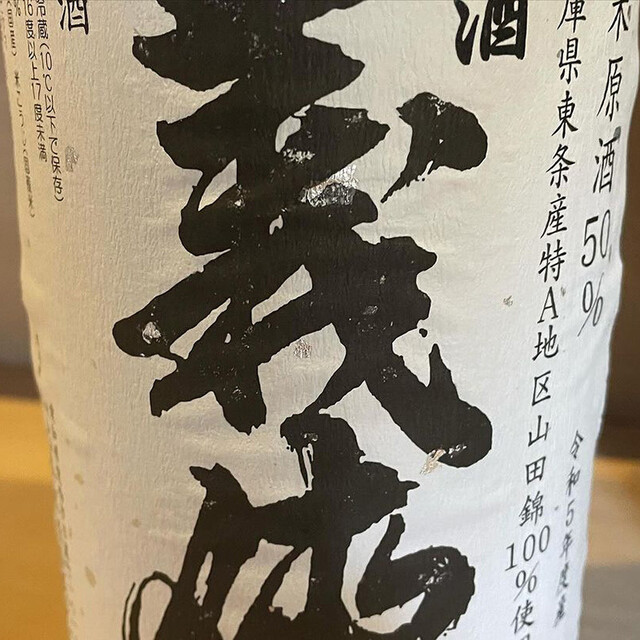 木原酒 50%
庫県東条産特A地区山田錦100%使用
令和5年度産
酒
義侠
酒
冷蔵(10℃以下で保存)
16度以上17度未満